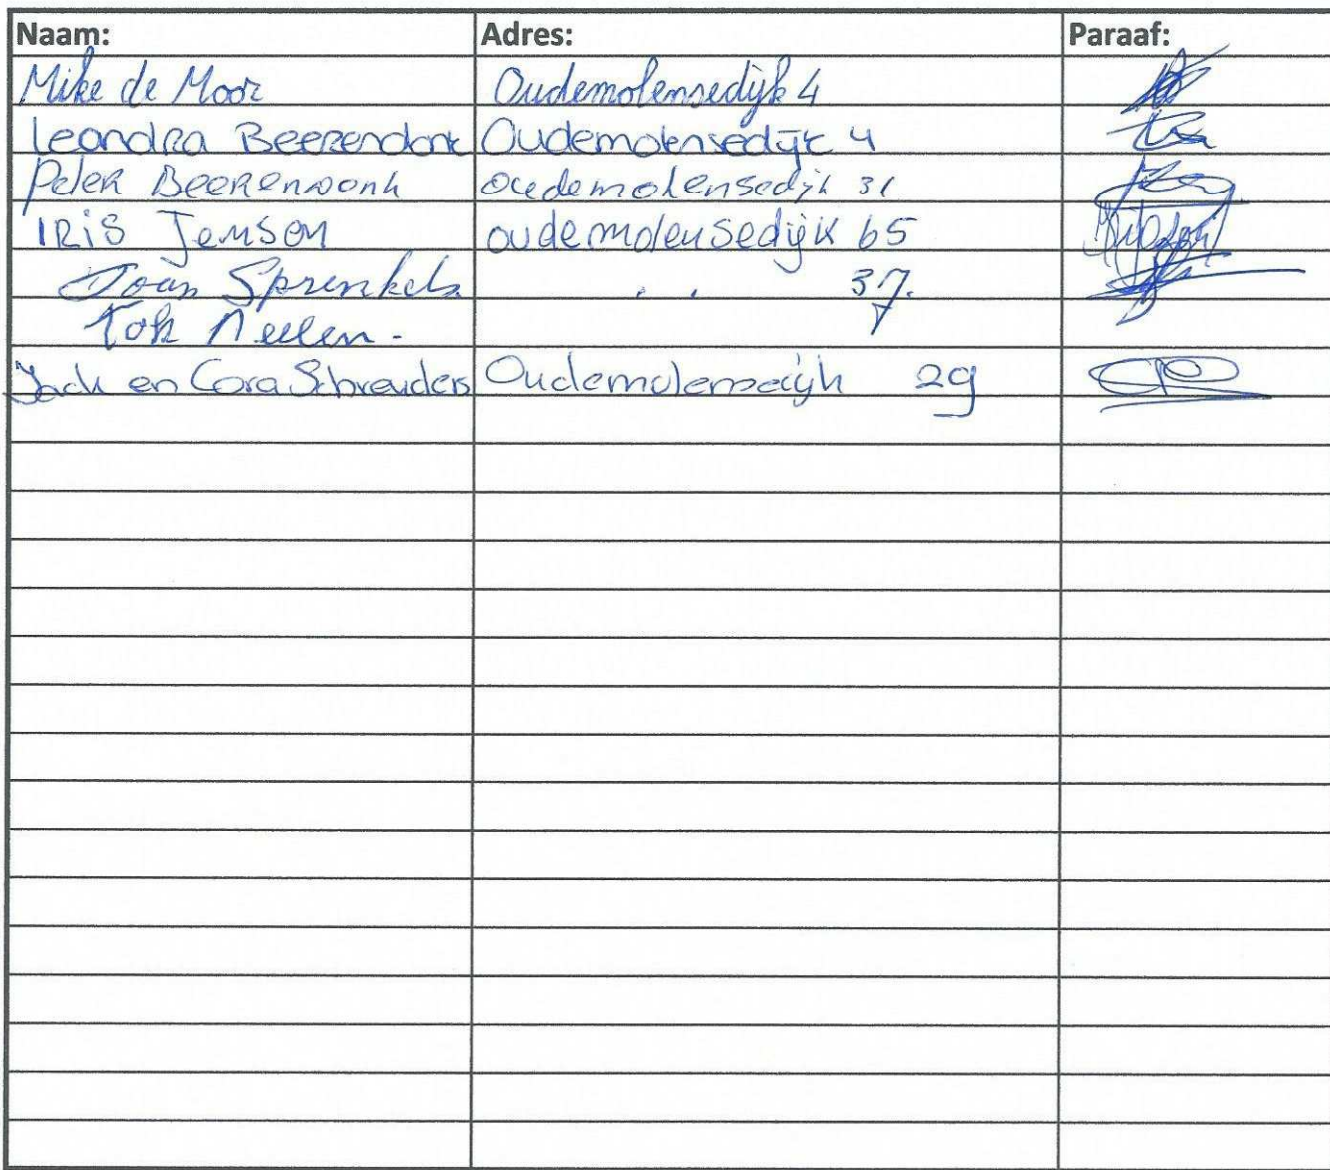 Naam: Adres: Paraaf:
Mike de Moor Oudemolensedijk 4
Leandra Beerendonk Oudemolensedijk 4
Peter Beerendonk oudemolensedijk 31
IRIS Jensen oudemolensedijk 65
Joan Sprenkels " " 37.
Neelen.
Jack en Cora Schreuders Oudemolensedijk 29